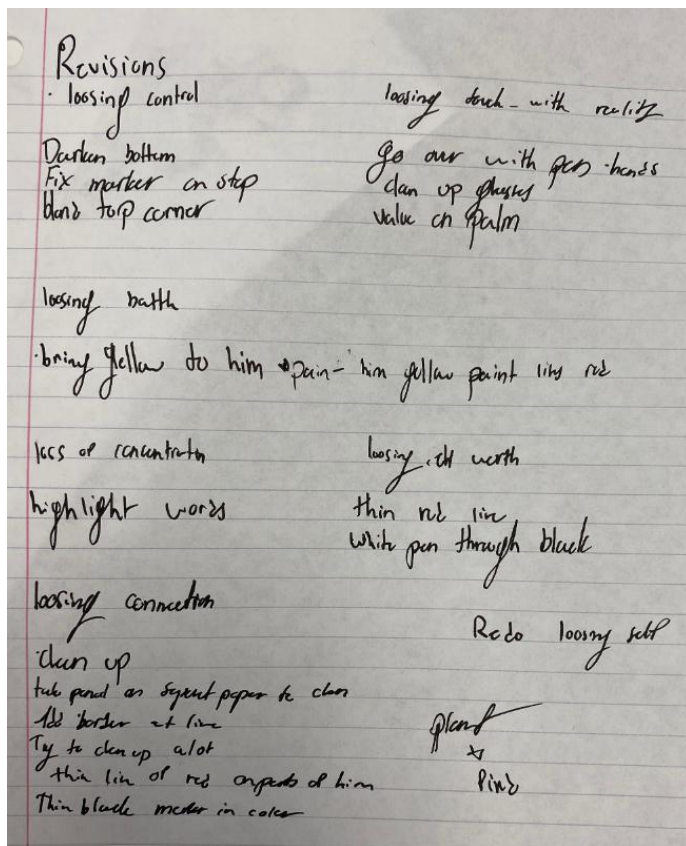 Revisions
· loosing control
Darken bottom
Fix marker on step
blend top corner
loosing touch - with reality
go over with pen - hands
clean up glasses
value on palm
loosing battle
· bring yellow to him pain - him yellow paint line red
loss of concentration
highlight words
loosing self worth
thin red line
White pen through black
loosing connection
clean up
paper to clean
Add border at line
Try to clean up alot
thin line of red on parts of him
Thin black marker in color
Redo loosing self